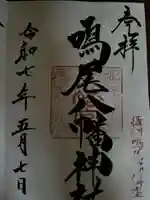 奉拝
鳴尾八幡神社
令和七年五月七日